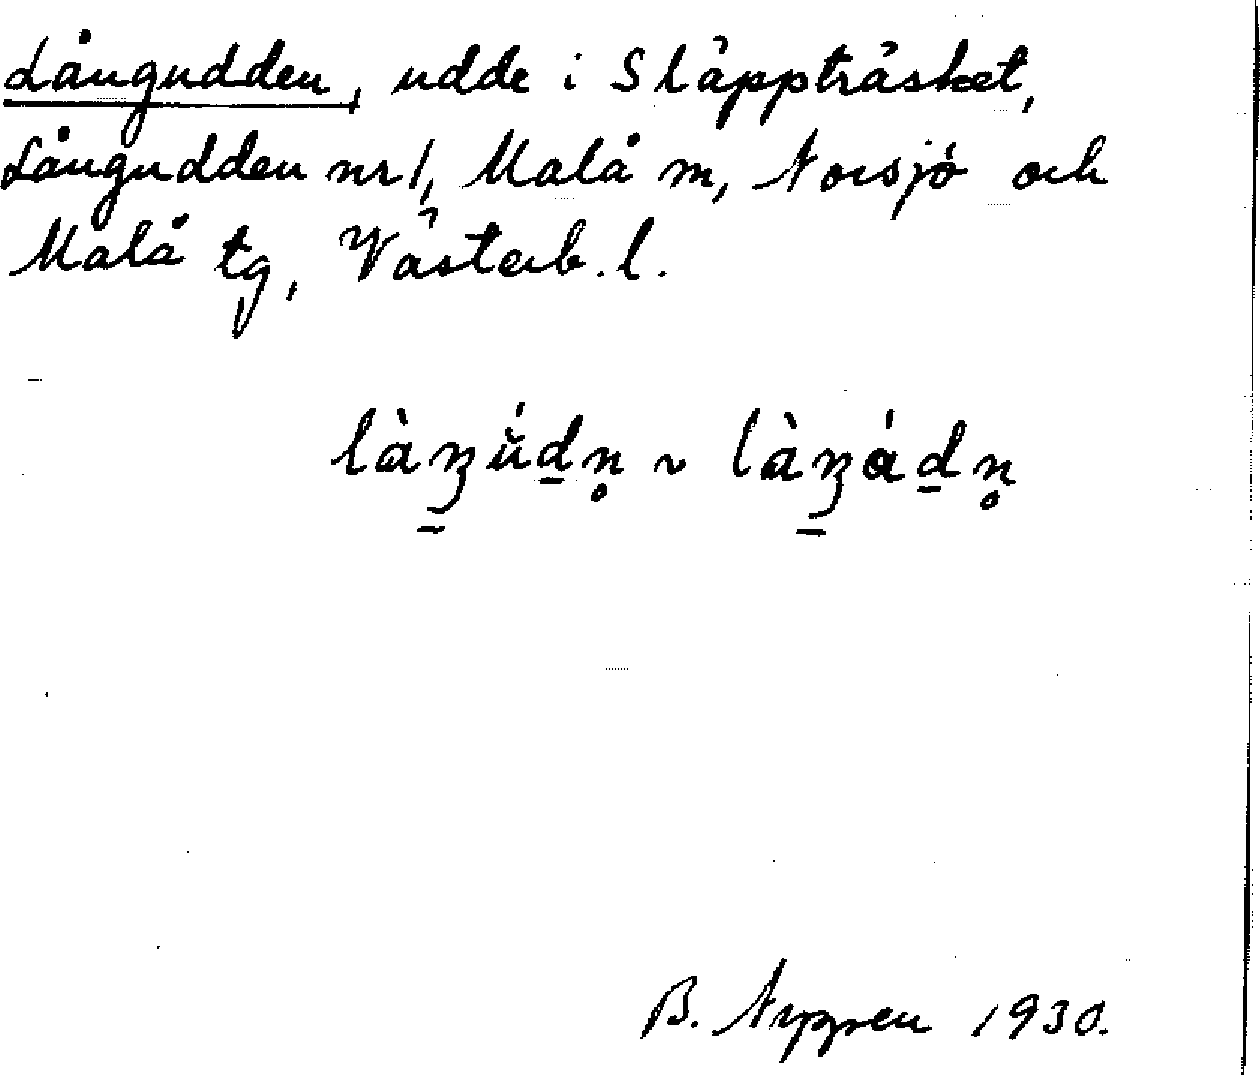 Långudden, udde i Släppträsket,
Långudden nr 1, Malå m, Norsjö och
Malå tg, Västerb. l.
B. Nygren 1930.